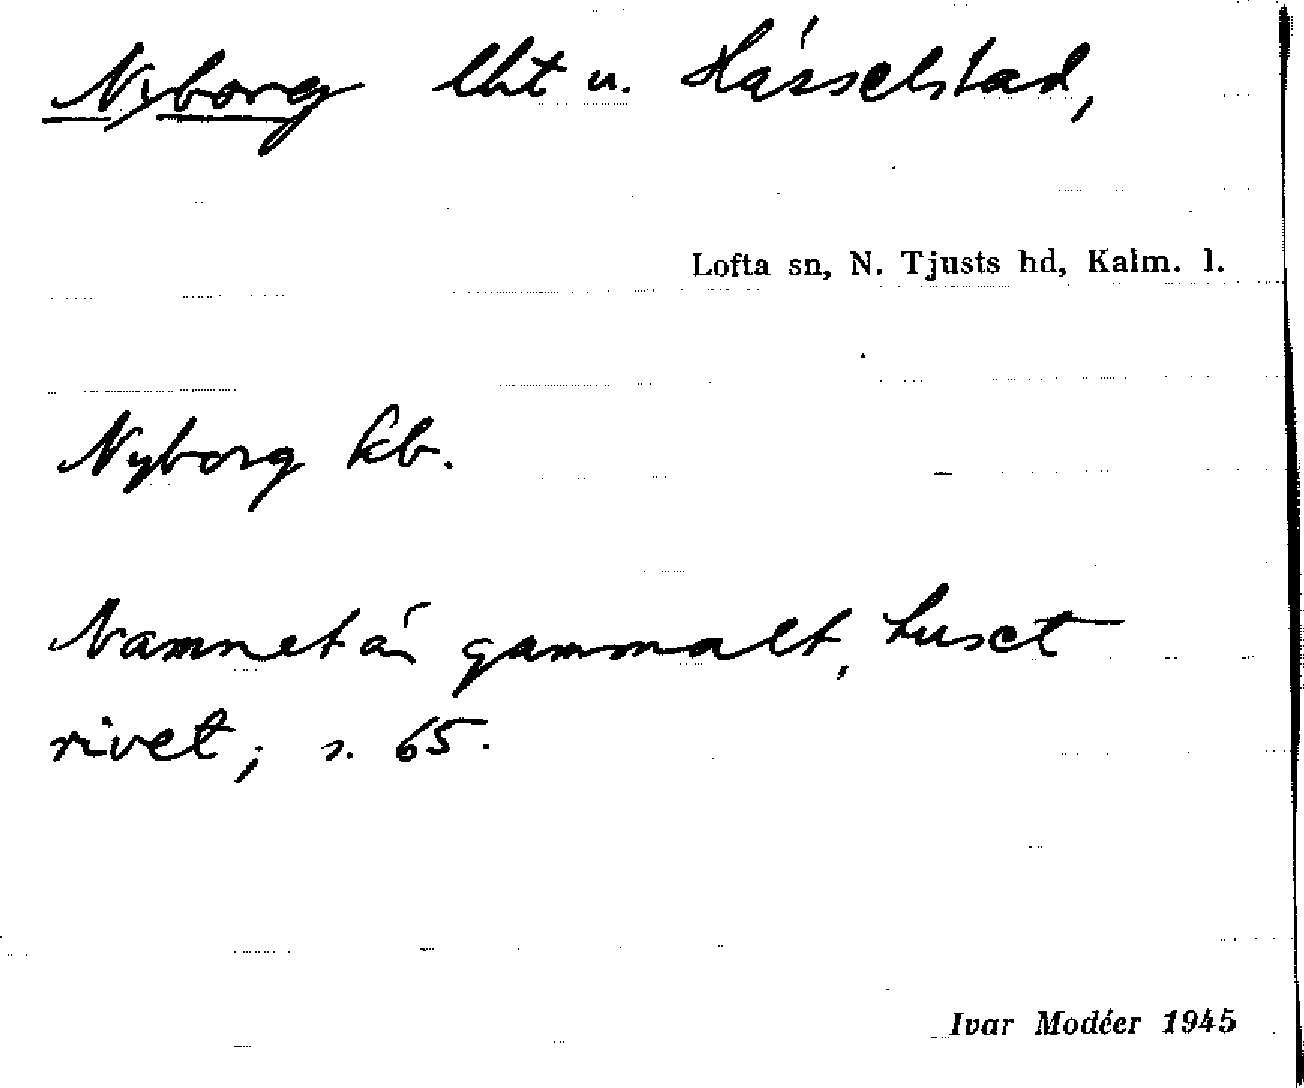 Nyborg lht u. Hässelstad,
Lofta sn, N. Tjusts hd, Kalm. l.
Nyborg kb.
Namnet är gammalt, huset
rivet; s. 65.
Ivar Modéer 1945